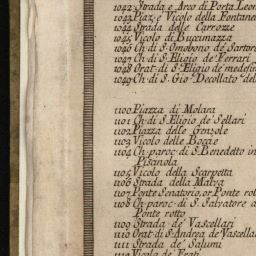 1042 Strada e Arco di Porta Leon
1043 Piaz. e Vicolo della Fontane
1044 Strada delle Carrozze
1045 Vicolo di Bucimazza
1046 Ch. di S. Omobono de Sartor
1047 Ch. di S. Eligio de Ferrari
1048 Orat. di S. Eligio de medesi
1049 Ch. di S. Gio. Decollato del
1100 Piazza di Molara
1101 Ch. di S. Eligio de Sellari
1102 Piazza delle Gensole
1103 Vicolo delle Bocae
1104 Ch. paroc. di S. Benedetto in
Piscinola
1105 Vicolo della Scarpetta
1106 Strada della Matra
1107 Ponte Senatorio, or Ponte rot
1108 Ch. paroc. di S. Salvatore a
Ponte rotto
1109 Strada de Vascellari
1110 Orat. di S. Andrea de Vascella
1111 Strada de Salumi
1112 Vicolo de Frati